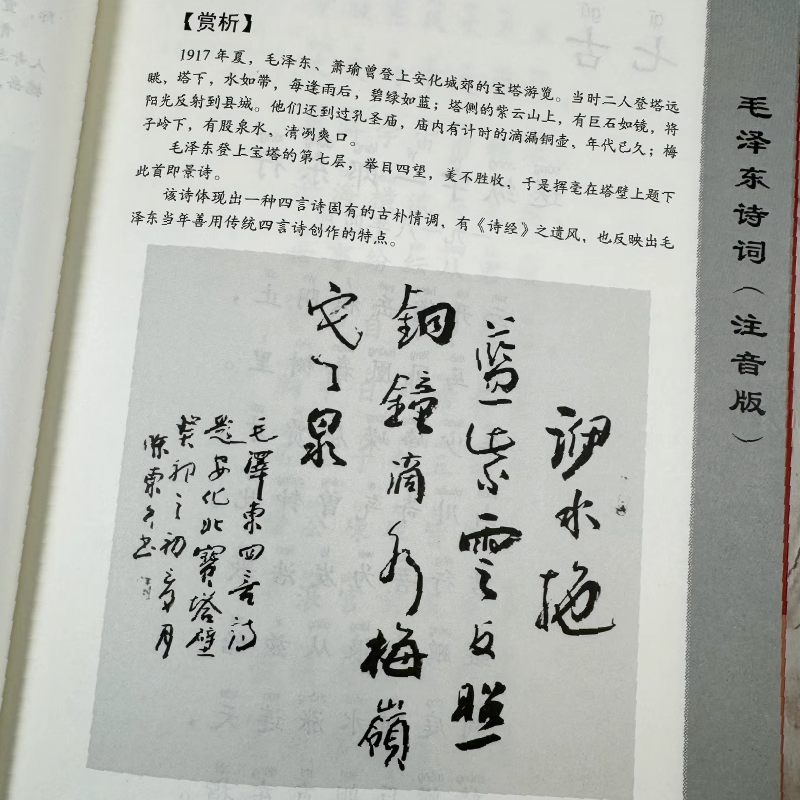 【赏析】
1917 年夏，毛泽东、萧瑜曾登上安化城郊的宝塔游览。当时二人登塔远
眺，塔下，水如带，每逢雨后，碧绿如蓝；塔侧的紫云山上，有巨石如镜，将
阳光反射到县城。他们还到过孔圣庙，庙内有计时的滴漏铜壶、年代已久；梅
子岭下，有股泉水，清洌爽口。
毛泽东登上宝塔的第七层，举目四望，美不胜收，于是挥毫在塔壁上题下
此首即景诗。
该诗体现出一种四言诗固有的古朴情调，有《诗经》之遗风，也反映出毛
泽东当年善用传统四言诗创作的特点。
水拖
藍紫雲反照
銅鐘滴水梅嶺
寒泉
毛澤東四言詩
題安化北寶塔壁
癸卯之初月
毛泽东诗词（注音版）